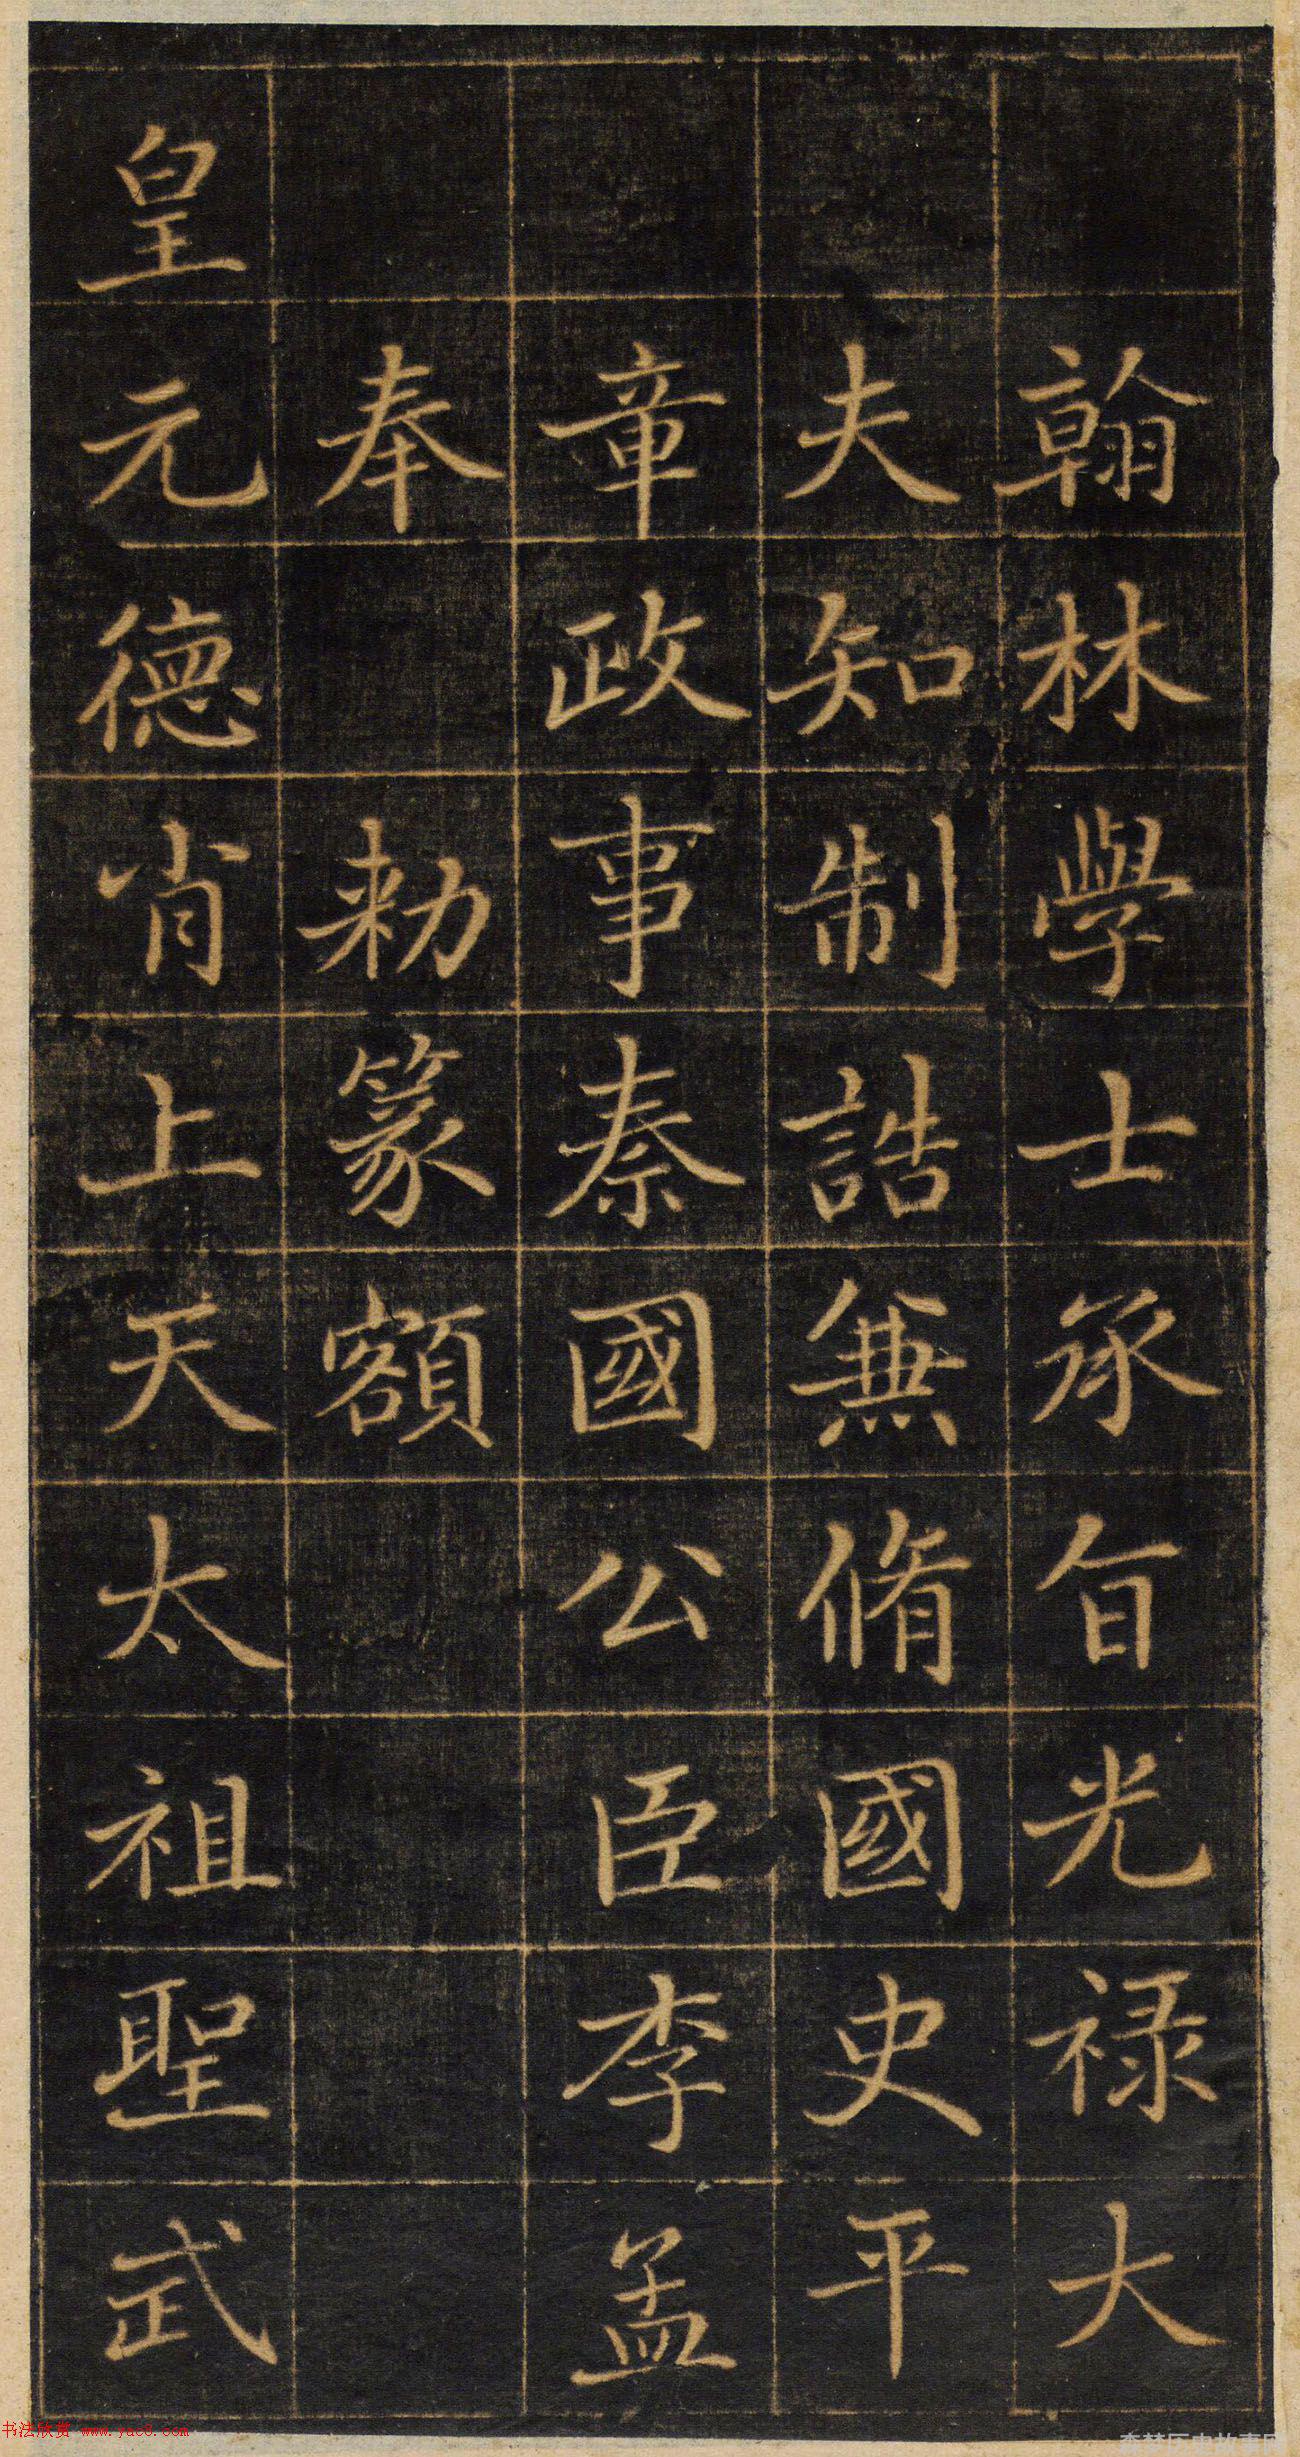 翰林學士承旨光禄大
夫知制誥兼脩國史平
章政事秦國公臣李孟
奉 勑篆額
皇元德肖上天太祖聖武
书法欣赏 www.yac8.com